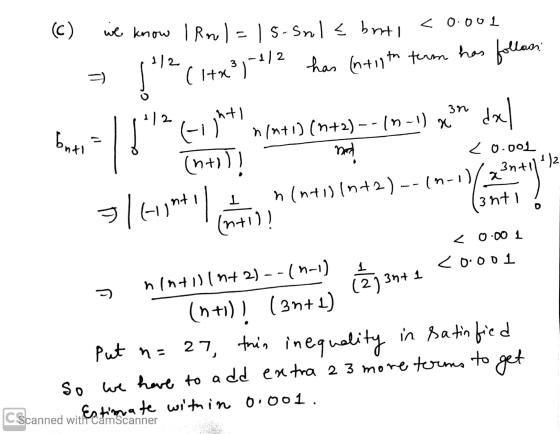 (c) we know |Rn| = |S-Sn| ≤ bn+1 < 0.001
⇒ ∫₀^1/2 (1+x³)^-1/2 has (n+1)th term has follows
bn+1 = | ∫₀^1/2 (-1)^n+1 / (n+1)! n(n+1)(n+2)---(n-1) x^3n dx |
< 0.001
⇒ |(-1)^n+1| 1/(n+1)! n(n+1)(n+2)---(n-1) (x^3n+1 / 3n+1)₀^1/2
< 0.001
⇒ n(n+1)(n+2)---(n-1) / (n+1)! (3n+1) 1/(2)^3n+1 < 0.001
Put n = 27, this inequality is satisfied
So we have to add extra 23 more terms to get
Estimate within 0.001.
CS Scanned with CamScanner